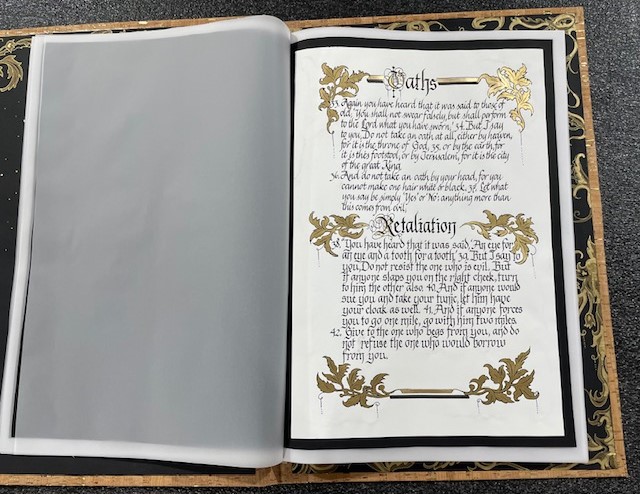 Oaths
33. Again you have heard that it was said to those of
old, 'You shall not swear falsely, but shall perform
to the Lord what you have sworn.' 34. But I say
to you, Do not take an oath at all, either by heaven,
for it is the throne of God, 35. or by the earth, for
it is this footstool, or by Jerusalem, for it is the city
of the great King.
36. And do not take an oath by your head, for you
cannot make one hair white or black. 37. Let what
you say be simply 'Yes' or 'No': anything more than
this comes from evil.
Retaliation
38. "You have heard that it was said, 'An eye for
an eye and a tooth for a tooth.' 39. But I say to
you, Do not resist the one who is evil. But
if anyone slaps you on the right cheek, turn
to him the other also. 40. And if anyone would
sue you and take your tunic, let him have
your cloak as well. 41. And if anyone forces
you to go one mile, go with him two miles.
42. Give to the one who begs from you, and do
not refuse the one who would borrow
from you.